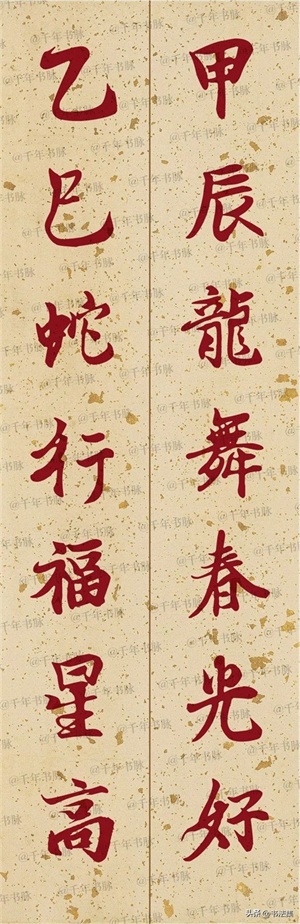 甲辰龍舞春光好
乙巳蛇行福星高
@千年书脉
头条 @书法屋